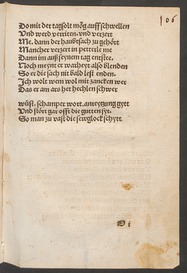 106
Do mit der taglolt mög auffschwellen
Und werd verriten, und verzert
Me, dann der haubtsach zu gehört
Mancher verzert in petterle me
Dann im außseynem tag entste,
Noch meynt er warheyt also blenden
So er die sach nit bald lest enden.
Jch wolt wem wol mit zancken wer
Das er am ars het hechlen schwer

wüst, schamper wort, anreytzung gytt
Und stört gar offt die gutten sytt
So man zu vast die sewglock schytt.
O i